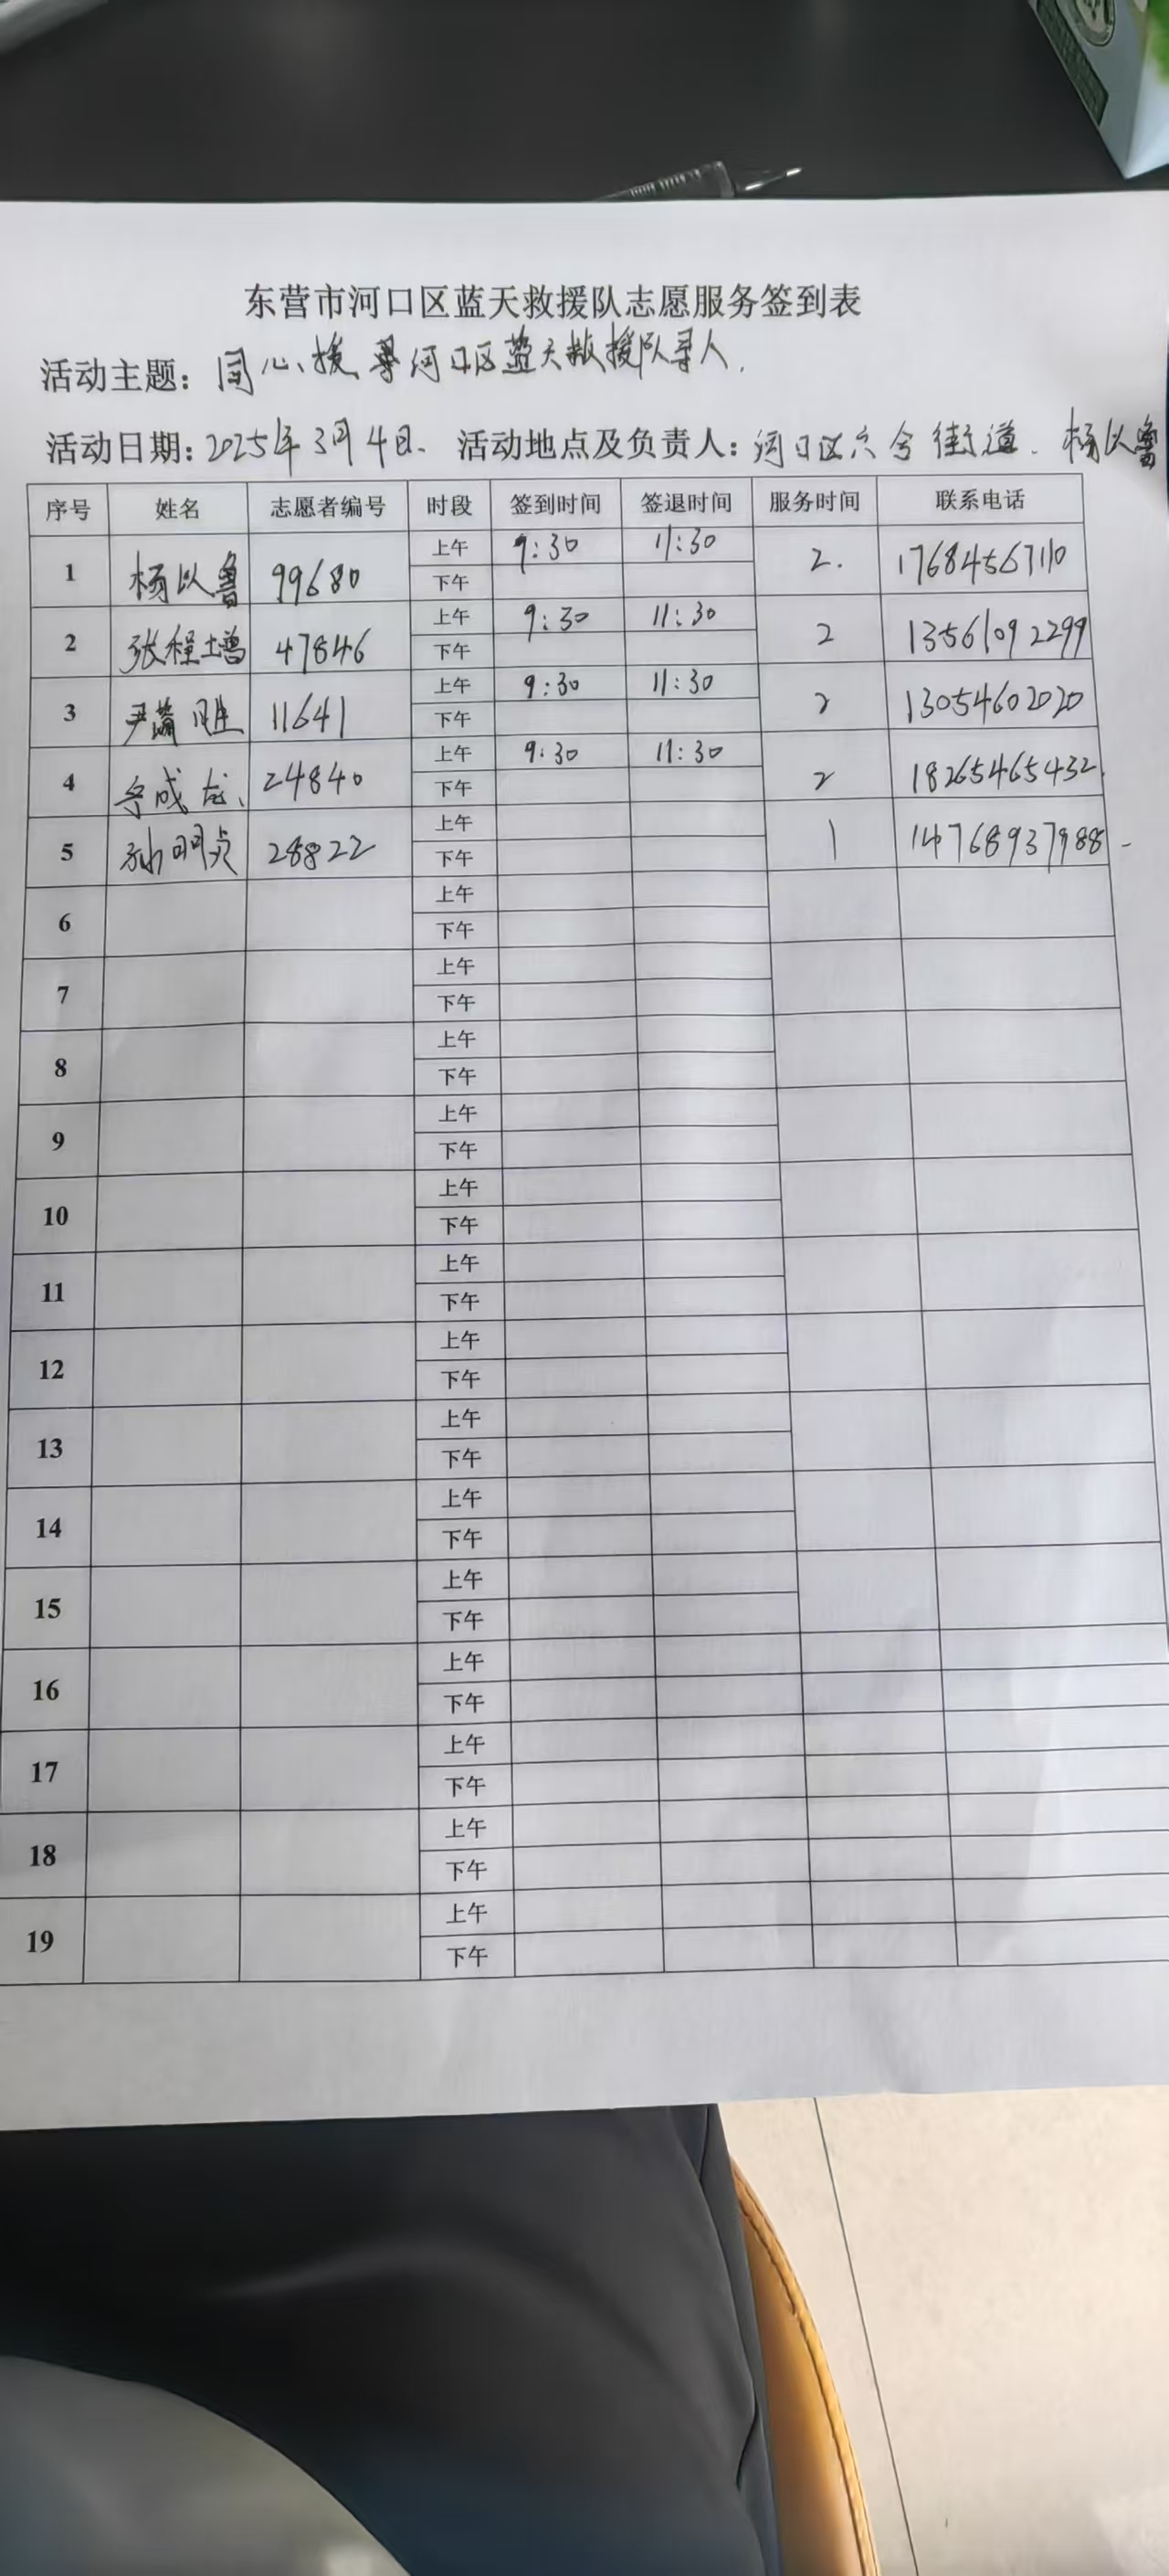 东营市河口区蓝天救援队志愿服务签到表
活动主题：同心援 寻河口区蓝天救援队寻人.
活动日期：2025年3月4日. 活动地点及负责人：河口区六合街道. 杨以鲁
序号 姓名 志愿者编号 时段 签到时间 签退时间 服务时间 联系电话
1 杨以鲁 99680 上午 9:30 11:30 2. 17684567110
下午
2 张程增 47846 上午 9:30 11:30 2 13561092299
下午
3 尹 胜 11641 上午 9:30 11:30 2 13054602020
下午
4 成龙 24840 上午 9:30 11:30 2 18265465432
下午
5 孙明贞 28822 上午 1 14768937988
下午
6 上午
下午
7 上午
下午
8 上午
下午
9 上午
下午
10 上午
下午
11 上午
下午
12 上午
下午
13 上午
下午
14 上午
下午
15 上午
下午
16 上午
下午
17 上午
下午
18 上午
下午
19 上午
下午